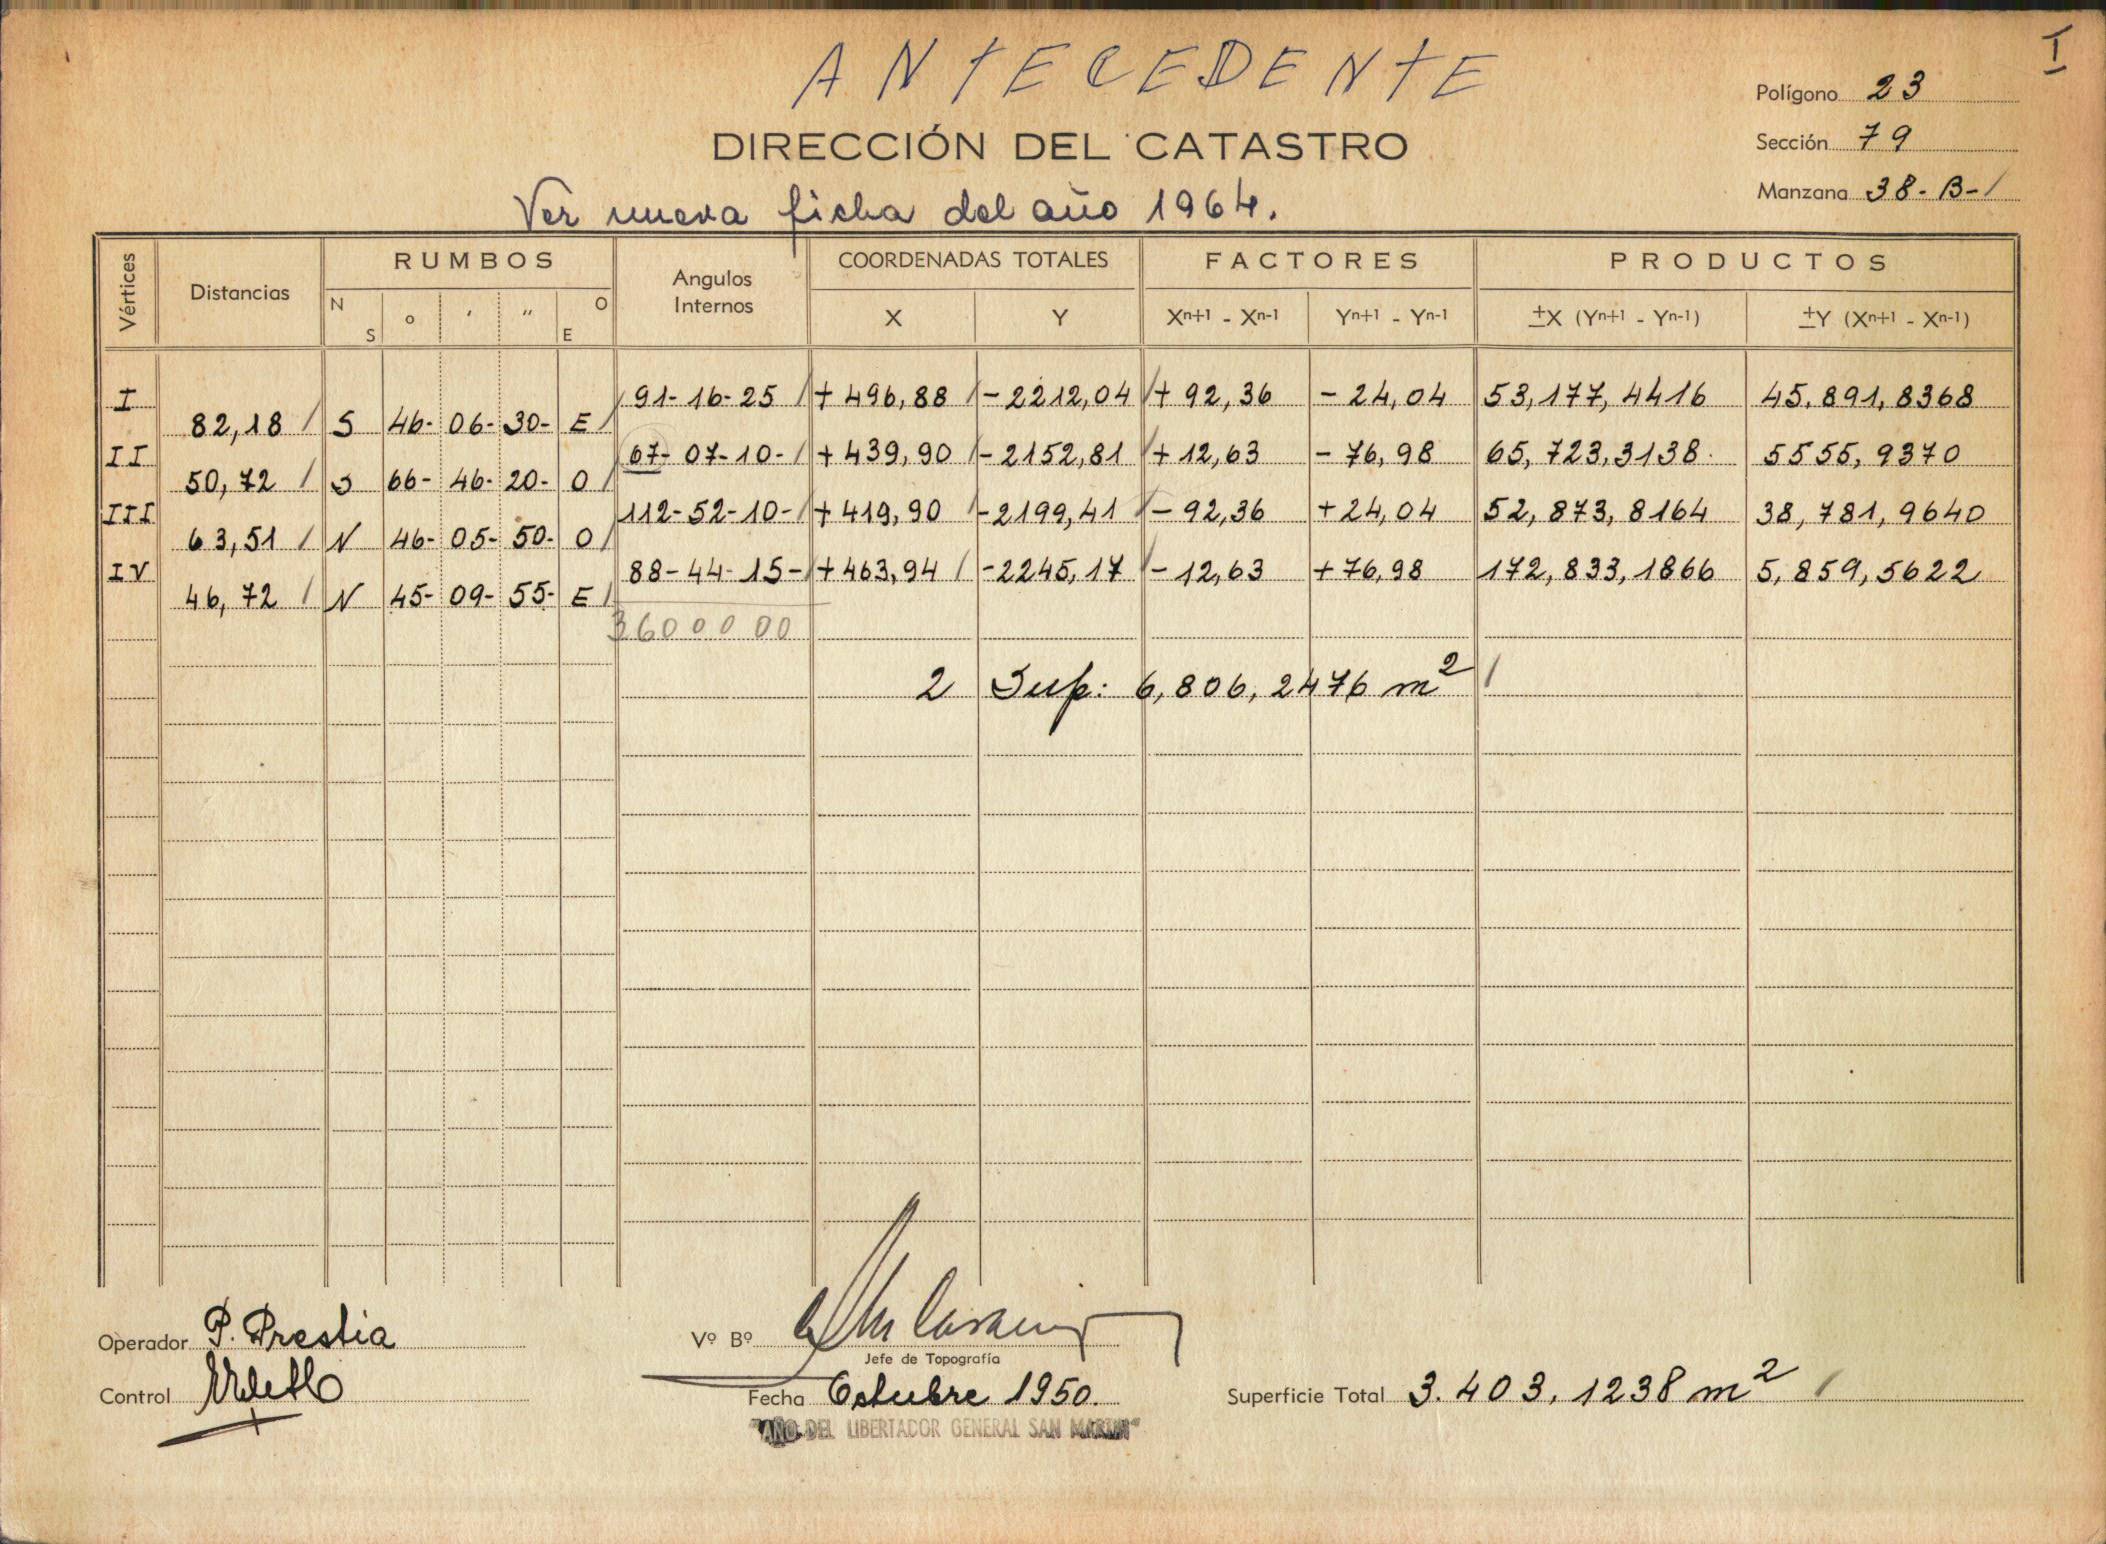 I
ANTECEDENTE
Polígono 23
DIRECCIÓN DEL CATASTRO
Sección 79
Manzana 38-B-1
Ver nueva ficha del año 1964.
Vértices Distancias RUMBOS Angulos Internos COORDENADAS TOTALES FACTORES PRODUCTOS
N S o ' '' O E X Y Xn+1 - Xn-1 Yn+1 - Yn-1 ±X (Yn+1 - Yn-1) ±Y (Xn+1 - Xn-1)
I 91-16-25 +496,88 -2212,04 +92,36 -24,04 53,177,4416 45.891,8368
82,18 S 46- 06- 30- E
II 67-07-10- +439,90 -2152,81 +12,63 -76,98 65,723,3138. 5555,9370
50,72 S 66- 46- 20- O
III 112-52-10- +419,90 -2199,41 -92,36 +24,04 52,873,8164 38,781,9640
63,51 N 46- 05- 50- O
IV 88-44-15- +463,94 -2245,17 -12,63 +76,98 172,833,1866 5,859,5622
46,72 N 45- 09- 55- E
360 00 00
2 Sup: 6,806,2476 m2
Operador P. Prestia
Vº Bº
Jefe de Topografía
Control
Fecha Octubre 1950.
Superficie Total 3.403,1238 m2
"AÑO DEL LIBERTADOR GENERAL SAN MARTIN"